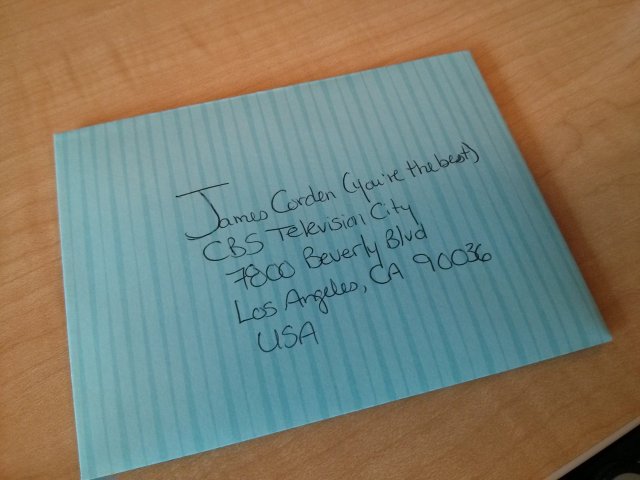 James Corden (you're the best)
CBS Television City
7800 Beverly Blvd
Los Angeles, CA 90036
USA